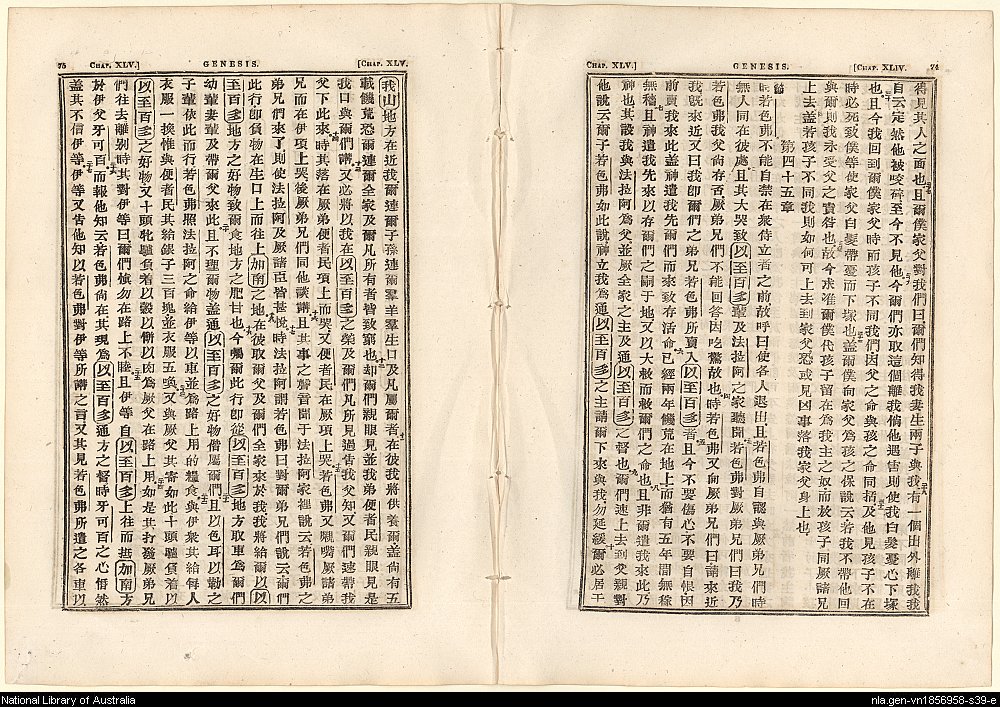 CHAP. XLV.]
GENESIS.
[CHAP. XLIV.
74
得見其人之面也且爾僕家父對我們曰爾們知得我妻生兩子與我有一個出外離我我
自云定然他被咬碎至今不見他今爾們亦取這個離我倘他遇害則使我白髮憂心下塚
也且今我回到爾僕家父時而孩子不同我們因父之命與孩之命同搭及他見孩子不在
時必死致僕等使家父白髮帶憂而下塚也蓋爾僕向家父為孩之保說云若我不帶他回
與爾則我永受父之責咎也故今求准爾僕代孩子留在為我主之奴而放孩子同厥諸兄
上去蓋若孩子不同我則如何可上去到家父恐或見凶事落我家父身上也
第四十五章
節若色弗不能自禁在眾侍立者之前故呼曰使各人退出且若色弗自認與厥弟兄們時
無人同在彼處且其大哭致以至百多輩及法拉阿之家聽聞若色弗對厥弟兄們曰我乃
若色弗我父尚存否厥弟兄們不能回答因吃驚故也時若色弗又向厥弟兄們曰請來近
我既來近又曰我即爾們之弟兄若色弗所賣入以至百多者且今不要傷心不要自恨因
前賣我來此蓋神遣我先爾們而來致存活命已經兩年饑荒在地上而猶有五年間無稼
無穡且神遣我先來以存爾們之嗣于地又以大救而救爾們之命也且非爾遣我來此乃
神也其設我與法拉阿為父並厥全家之主及通以至百多之督也爾們速上去到父親對
他說云爾子若色弗如此說神立我為通以至百多之主請爾下來與我勿延緩爾必居于
75
CHAP. XLV.]
GENESIS.
[CHAP. XLV.
我山地方在近我爾連爾子孫連爾羣羊羣生口及凡屬爾者在彼我將供養爾蓋尚有五
載饑荒恐爾連爾全家及爾凡所有者皆致窮也却爾們親眼見並我弟便者民親眼見是
我口與爾們講又必將以我在以至百多之榮及爾們凡所見過告我父知又爾們速帶我
父下此來時其落在厥弟便者民項上而哭又便者民在厥項上哭若色弗又親嘴厥諸弟
兄而在伊項上哭後厥弟兄們同他談講且其事之聲音聞于法拉阿家裡說云若色弗之
弟兄們來了則使法拉阿及厥諸臣皆甚悅時法拉阿謂若色弗曰對爾弟兄們說云爾們
此行即負物在生口上而往上加南之地在彼取爾父及爾們全家來於我我將給爾以以
至百多地方之好物致爾食地方之肥甘也今囑爾此行即從以至百多地方取車為爾們
幼輩妻輩及帶爾父來此且不理爾物蓋通以至百多之好物偕屬爾們且以色耳以勒之
子輩依此而行若色弗照法拉阿之命給伊等以車並為路上用的糧食與伊眾其給每人
衣服一換惟與便者民其給銀子三百塊並衣服五換又與厥父其寄如此十頭驢負着以
以至百多之好物又十頭牝驢負着以穀以餅以肉為厥父在路上用如是其打發厥弟兄
們往去離别時其對伊等曰爾們慎勿在路上不睦且伊等自以至百多上往而抵加南方
於伊父牙可百而報他知云若色弗尚在其現為以至百多通方之督時牙可百之心惛然
蓋其不信伊等伊等又告他知以若色弗對伊等所講之言又其見若色弗所遣之各車以
National Library of Australia
nla.gen-vn1856958-s39-e